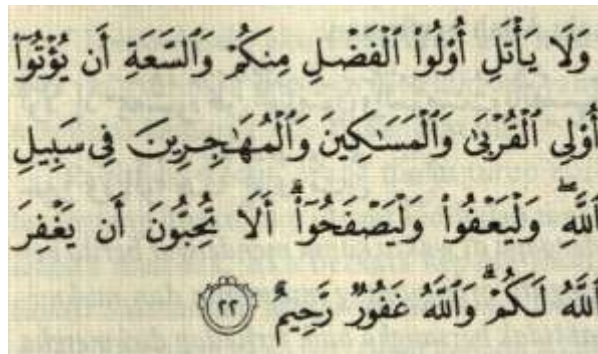 وَلَا يَأْتَلِ أُو۟لُوا۟ ٱلْفَضْلِ مِنكُمْ وَٱلسَّعَةِ أَن يُؤْتُوٓا۟
أُو۟لِى ٱلْقُرْبَىٰ وَٱلْمَسَـٰكِينَ وَٱلْمُهَـٰجِرِينَ فِى سَبِيلِ
ٱللَّهِ ۖ وَلْيَعْفُوا۟ وَلْيَصْفَحُوٓا۟ ۗ أَلَا تُحِبُّونَ أَن يَغْفِرَ
ٱللَّهُ لَكُمْ ۗ وَٱللَّهُ غَفُورٌ رَّحِيمٌ ٢٢